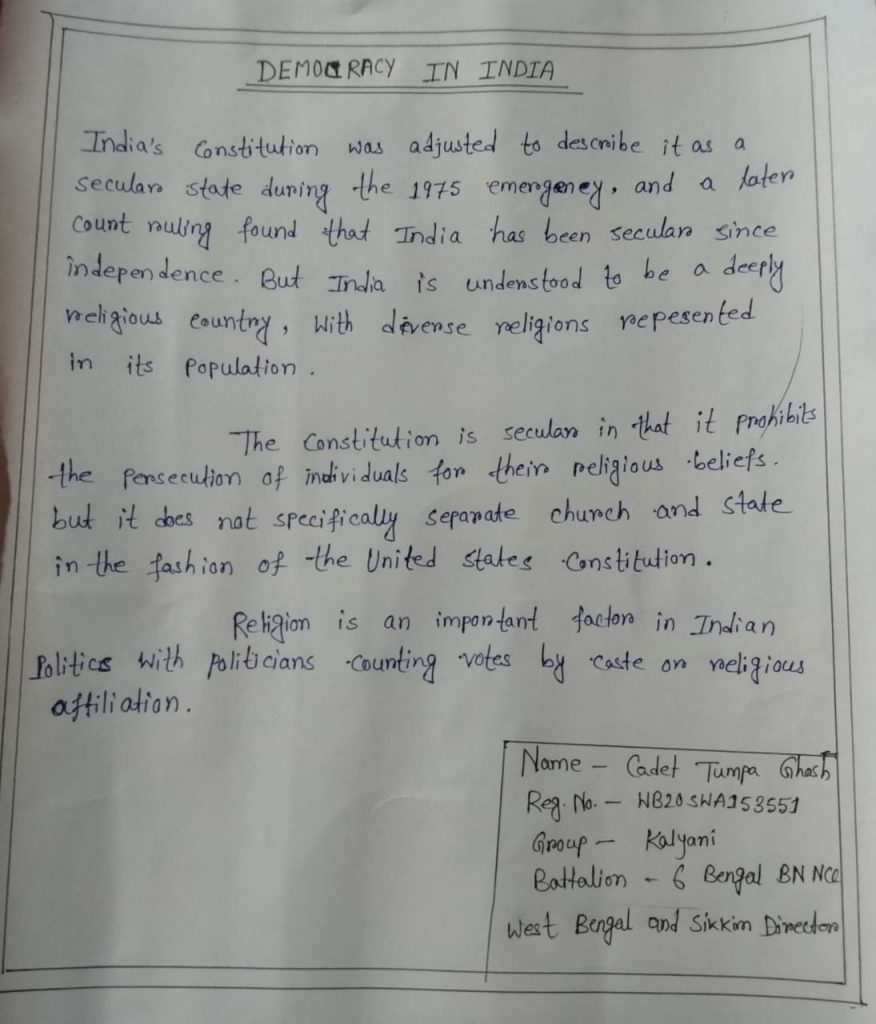 DEMOCRACY IN INDIA
India's Constitution was adjusted to describe it as a
secular state during the 1975 emergency, and a later
Court ruling found that India has been secular since
independence. But India is understood to be a deeply
religious country, With diverse religions repesented
in its Population.
The Constitution is secular in that it prohibits
the persecution of individuals for their religious beliefs.
but it does not specifically separate church and state
in the fashion of the United States Constitution.
Religion is an important factor in Indian
Politics with politicians counting votes by caste or religious
affiliation.
Name - Cadet Tumpa Ghosh
Reg. No. - WB20SWA153551
Group - Kalyani
Battalion - 6 Bengal BN NCC
West Bengal and Sikkim Director